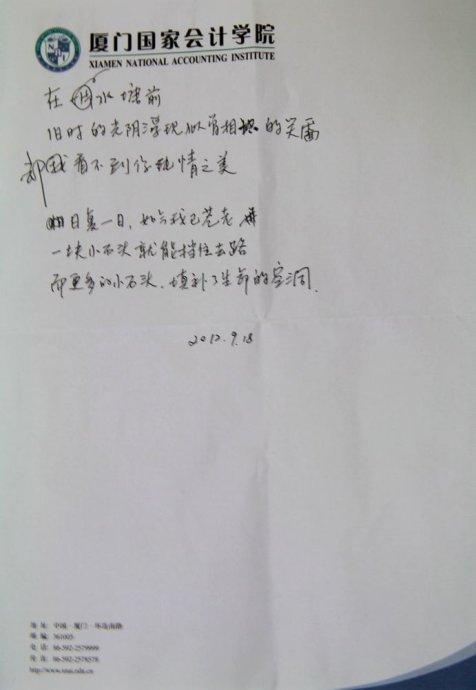 厦门国家会计学院
XIAMEN NATIONAL ACCOUNTING INSTITUTE
在 水塘前
旧时的光阴浮现似曾相识的笑靥
却 我看不到你现情之美
日复一日，如今我已苍老
一块小石头就能挡住去路
而更多的小石头，填补了生命的空洞.
2012.9.18
地 址: 中国·厦门·环岛南路
邮 编: 361005
电 话: 86-592-2579999
传 真: 86-592-2578578
http://www.xnai.edu.cn